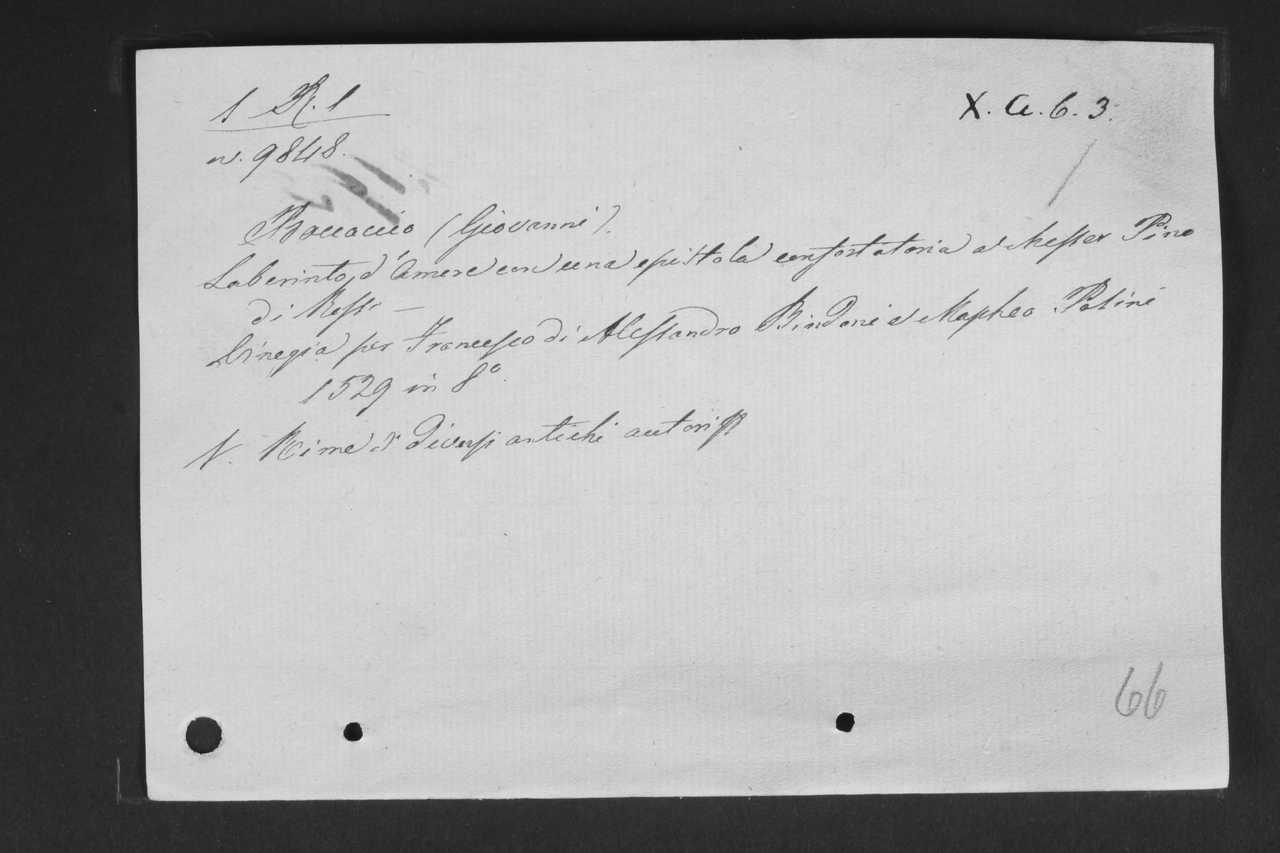 1 R. 1
n. 9848.
X. a. 6. 3.
Boccaccio (Giovanni).
Laberinto d'Amore con una epistola confortatoria a Messer Pino
di Rossi —
Vinegia per Francesco di Alessandro Bindoni e Mapheo Pasini
1529 in 8º.
V. Rime di diversi antichi autori
66